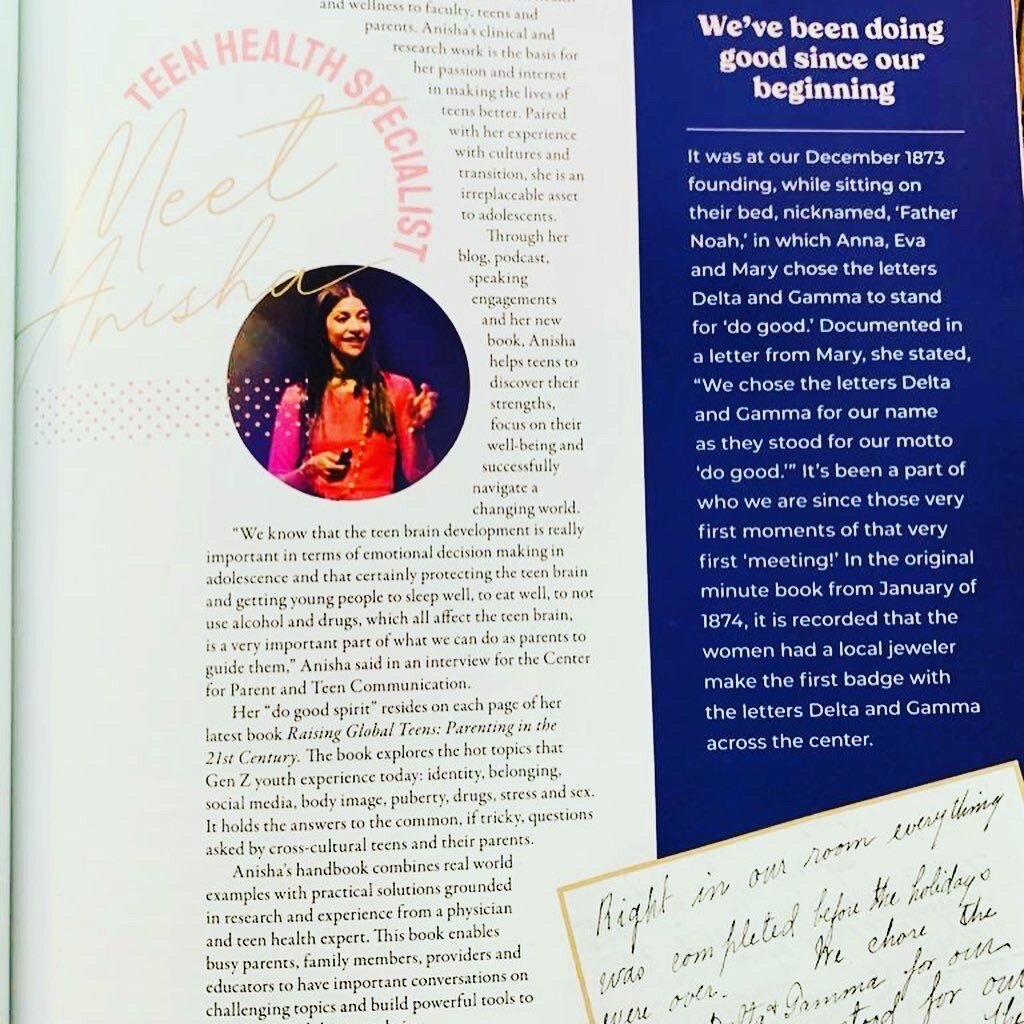 and wellness to faculty, teens and
parents. Anisha's clinical and
research work is the basis for
her passion and interest
in making the lives of
teens better. Paired
with her experience
with cultures and
transition, she is an
irreplaceable asset
to adolescents.
Through her
blog, podcast,
speaking
engagements
and her new
book, Anisha
helps teens to
discover their
strengths,
focus on their
well-being and
successfully
navigate a
changing world.
TEEN HEALTH SPECIALIST
Meet
Anisha
"We know that the teen brain development is really
important in terms of emotional decision making in
adolescence and that certainly protecting the teen brain
and getting young people to sleep well, to eat well, to not
use alcohol and drugs, which all affect the teen brain,
is a very important part of what we can do as parents to
guide them," Anisha said in an interview for the Center
for Parent and Teen Communication.
Her "do good spirit" resides on each page of her
latest book Raising Global Teens: Parenting in the
21st Century. The book explores the hot topics that
Gen Z youth experience today: identity, belonging,
social media, body image, puberty, drugs, stress and sex.
It holds the answers to the common, if tricky, questions
asked by cross-cultural teens and their parents.
Anisha's handbook combines real world
examples with practical solutions grounded
in research and experience from a physician
and teen health expert. This book enables
busy parents, family members, providers and
educators to have important conversations on
challenging topics and build powerful tools to
We've been doing
good since our
beginning
It was at our December 1873
founding, while sitting on
their bed, nicknamed, 'Father
Noah,' in which Anna, Eva
and Mary chose the letters
Delta and Gamma to stand
for 'do good.' Documented in
a letter from Mary, she stated,
"We chose the letters Delta
and Gamma for our name
as they stood for our motto
'do good.'" It's been a part of
who we are since those very
first moments of that very
first 'meeting!' In the original
minute book from January of
1874, it is recorded that the
women had a local jeweler
make the first badge with
the letters Delta and Gamma
across the center.
Right in our room everything
was completed before the holidays
were over. We chose the
Delta & Gamma for our
stood for our
the